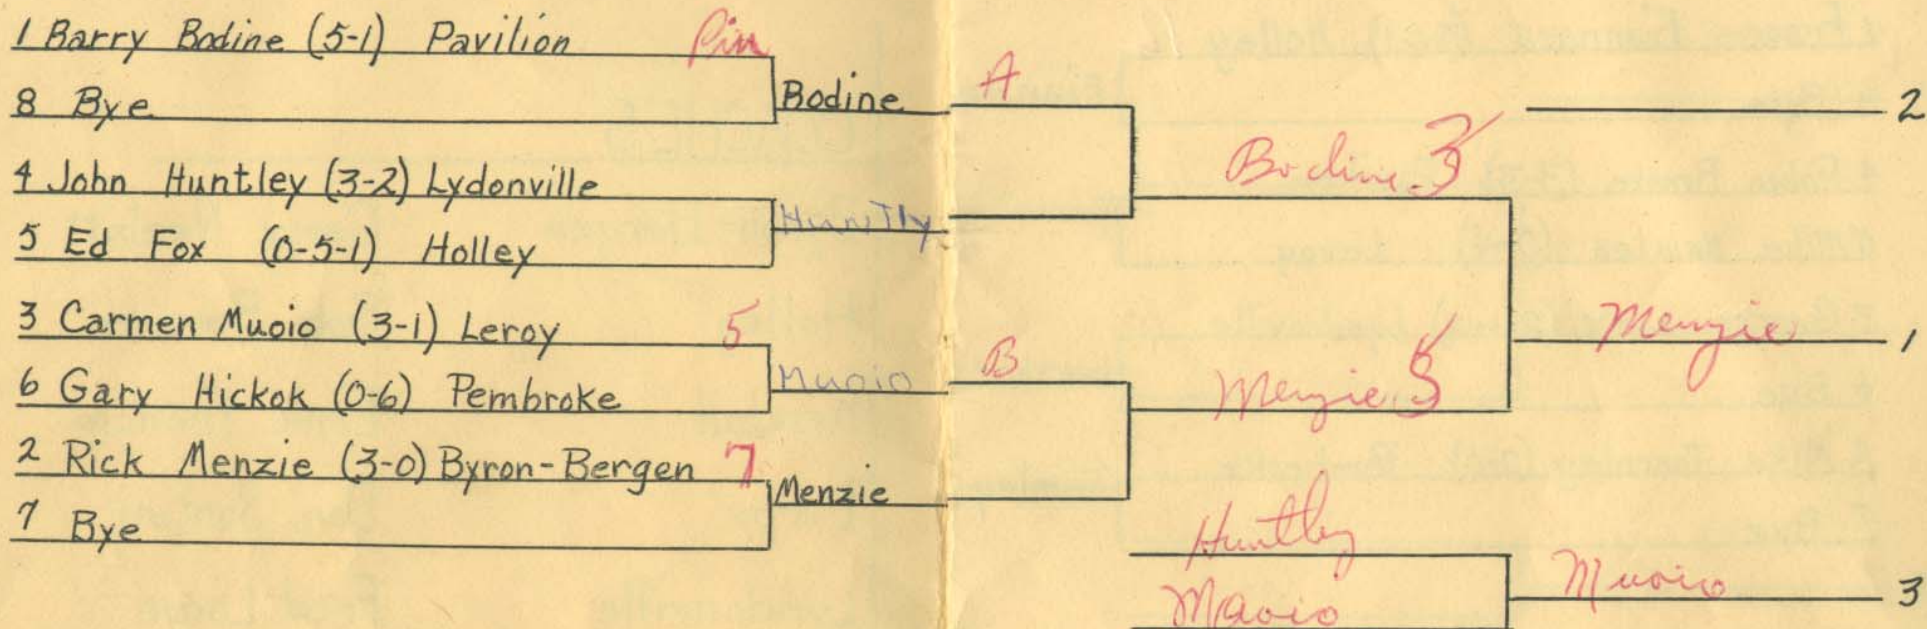 1 Barry Bodine (5-1) Pavilion Pin
8 Bye
Bodine A
4 John Huntley (3-2) Lydonville
5 Ed Fox (0-5-1) Holley
Huntly
3 Carmen Muoio (3-1) Leroy 5
6 Gary Hickok (0-6) Pembroke
Muoio B
2 Rick Menzie (3-0) Byron-Bergen 7
7 Bye
Menzie
Bodine 3
2
Menzie 5
Menzie 1
Huntley
Muoio
Muoio 3